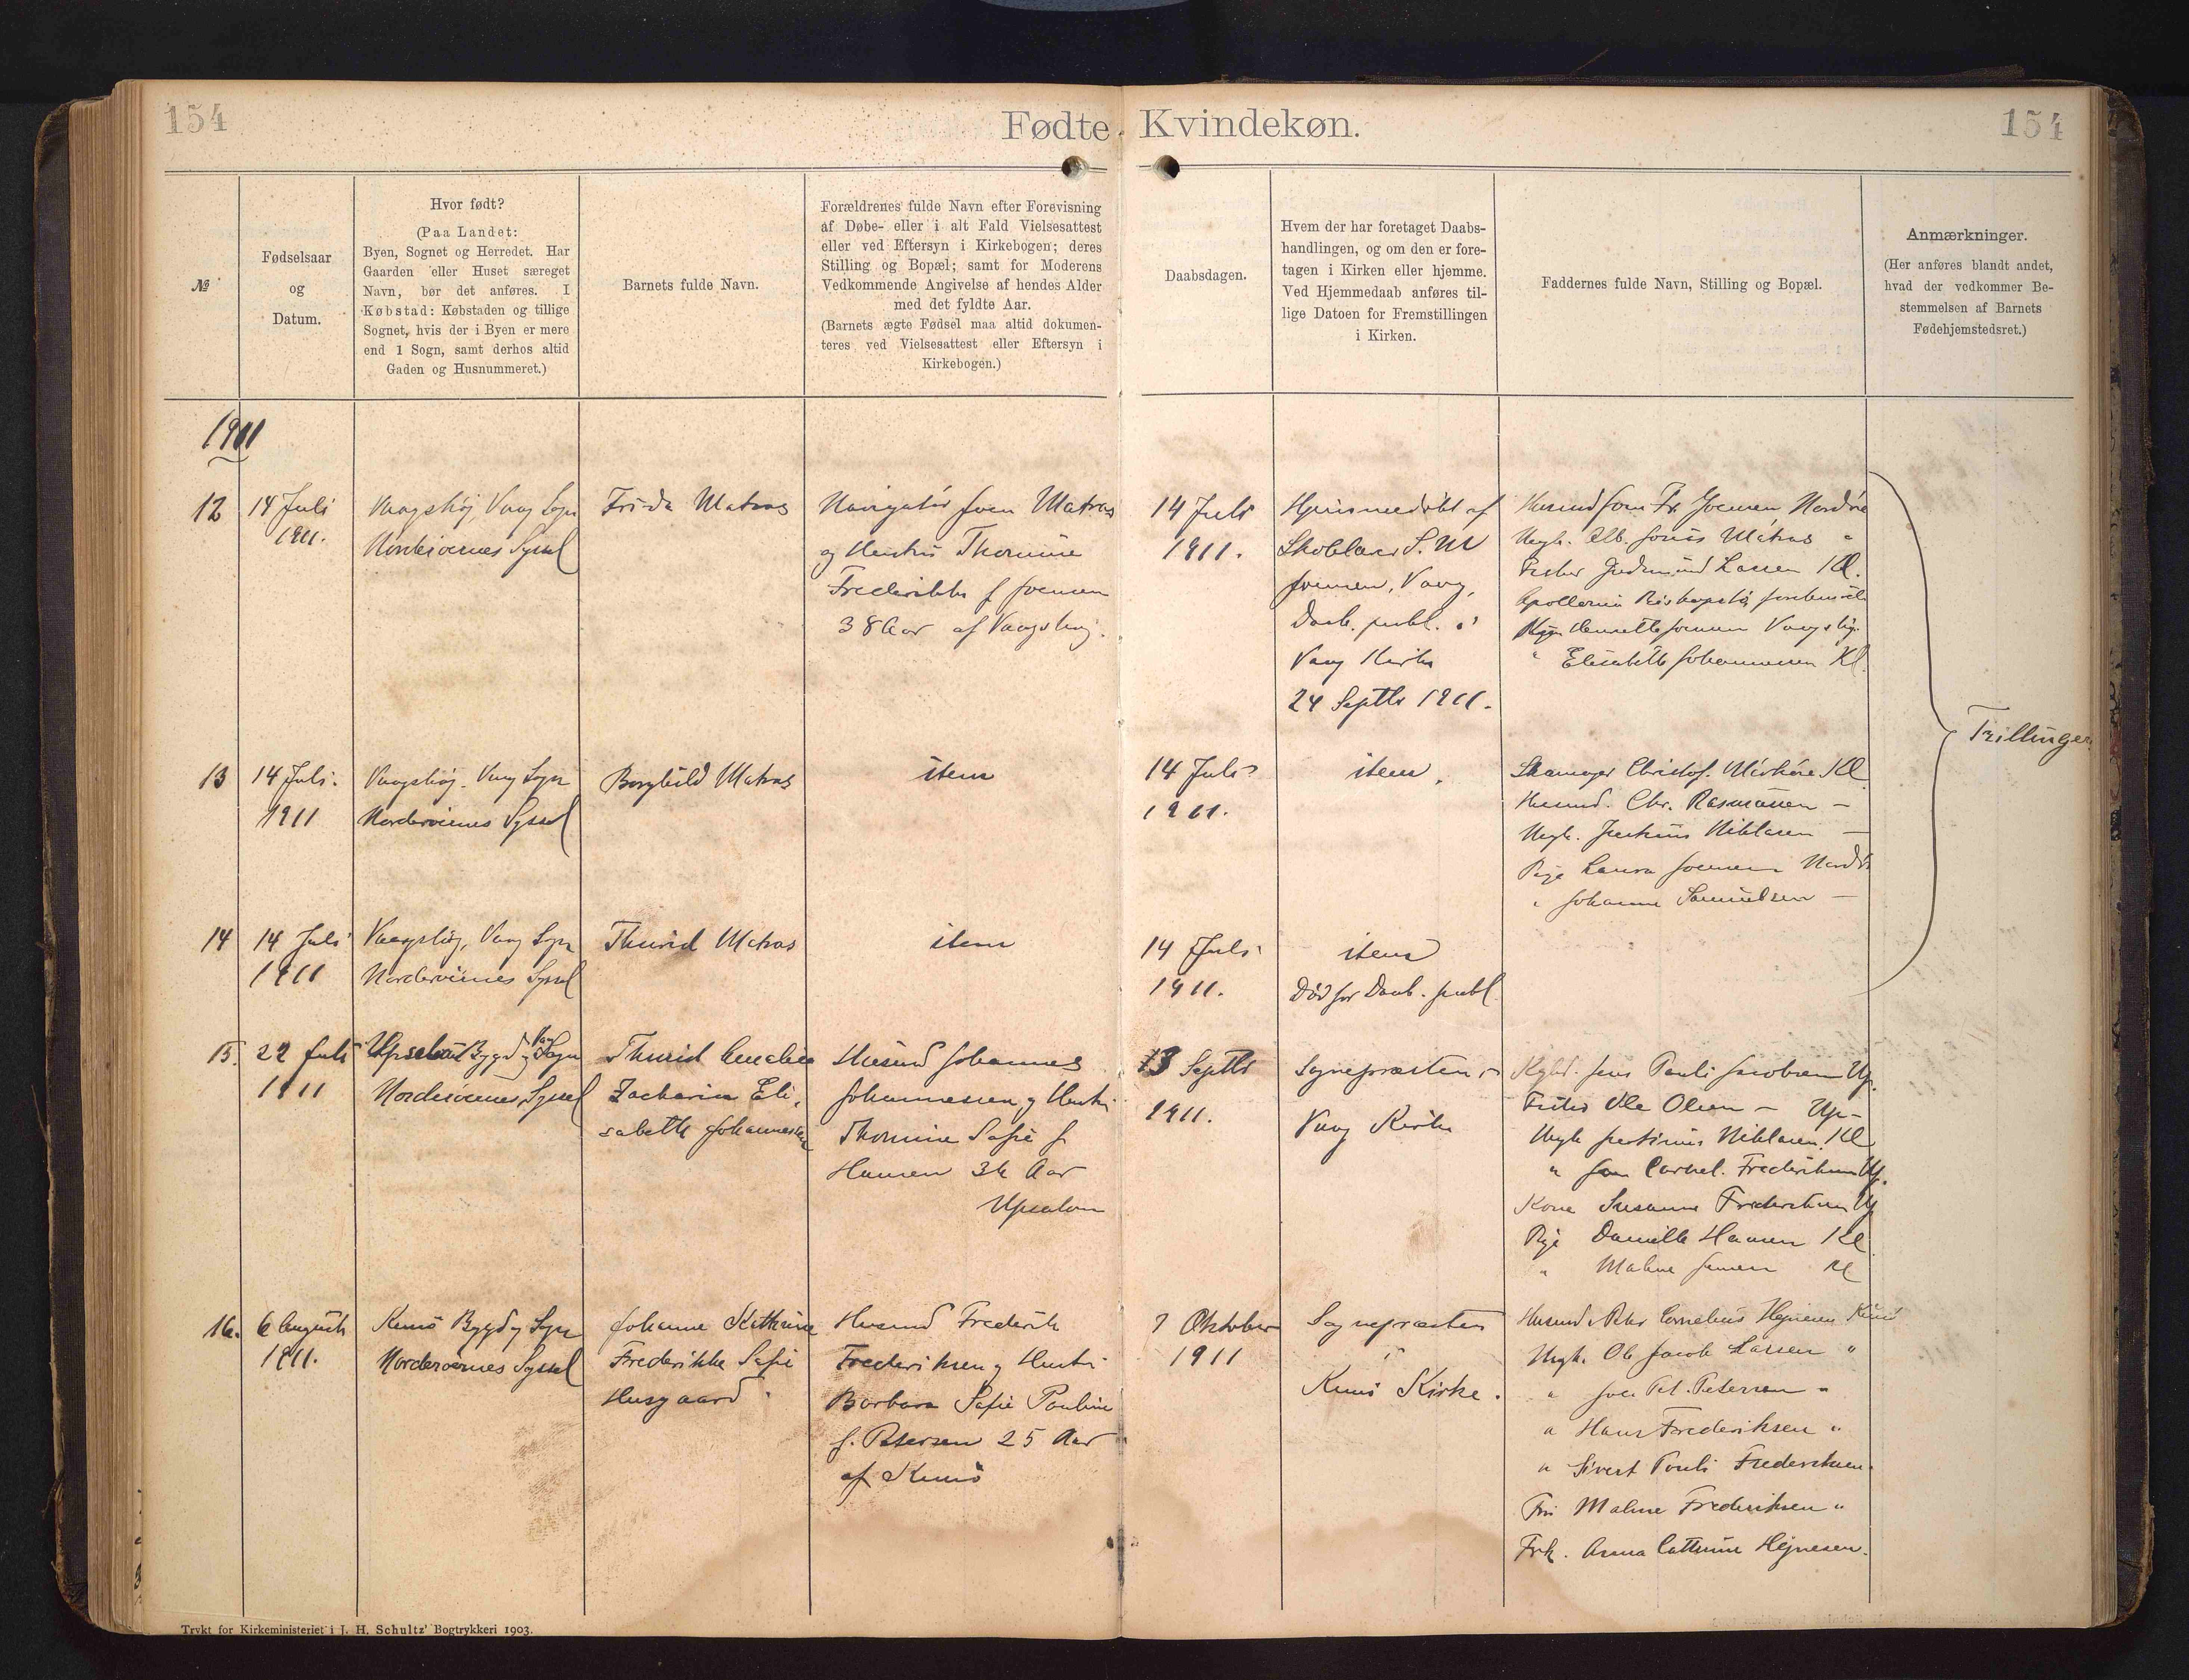 154
Fødte Kvindekøn.
154
№
Fødselsaar
og
Datum.
Hvor født?
(Paa Landet:
Byen, Sognet og Herredet. Har
Gaarden eller Huset særeget
Navn, bør det anføres. I
Købstad: Købstaden og tillige
Sognet, hvis der i Byen er mere
end 1 Sogn, samt derhos altid
Gaden og Husnummeret.)
Barnets fulde Navn.
Forældrenes fulde Navn efter Forevisning
af Døbe- eller i alt Fald Vielsesattest
eller ved Eftersyn i Kirkebogen; deres
Stilling og Bopæl; samt for Moderens
Vedkommende Angivelse af hendes Alder
med det fyldte Aar.
(Barnets ægte Fødsel maa altid dokumen-
teres ved Vielsesattest eller Eftersyn i
Kirkebogen.)
Daabsdagen.
Hvem der har foretaget Daabs-
handlingen, og om den er fore-
tagen i Kirken eller hjemme.
Ved Hjemmedaab anføres til-
lige Datoen for Fremstillingen
i Kirken.
Faddernes fulde Navn, Stilling og Bopæl.
Anmærkninger.
(Her anføres blandt andet,
hvad der vedkommer Be-
stemmelsen af Barnets
Fødehjemstedsret.)
1911
12
14 Juli
1911.
Vaagshøj, Vaag Sogn
Norderøernes Syssel
Frida Matras
Navigatør Matras
og Hustru Thomine
Frederikke f Joensen
38 Aar af Vaagshøj.
14 Juli
1911.
Hjemmedøbt af
Skolelærer S. M
Joensen, Vaag,
Daab. publ. i
Vaag Kirke
24 Septbr 1911.
Husmd Fr. Joensen
Ungk. Alb. Matras "
Lassen Kl.
Pige Henriette Joensen Vaagshøj.
" Elisabeth Johannesen Kl.
Trillinger
13
14 Juli.
1911
Vaagshøj. Vaag Sogn
Norderøernes Syssel
Borghild Matras
item
14 Juli
1911.
item.
Christof. Kl
Husmd. Chr. Rasmussen -
Ungk. Niklasen -
Pige Laura Joensen
" Johanne Samuelsen -
14
14 Juli
1911
Vaagshøj, Vaag Sogn
Norderøernes Syssel
Thurid Matras
item
14 Juli
1911.
item
Død før Daab. publ.
15.
22 Juli
1911
Bygd og Vaag Sogn
Norderøernes Syssel
Thurid Amalie
Zacharia Eli-
sabeth Johannesen
Husmd Johannes
Johannesen og Hustru
Thomine Sofie f.
Hansen Aar
Upsalom
13 Septbr
1911.
Sognepræsten i
Vaag Kirke
Jens Pauli Jacobsen Up.
Ole Olsen - Up-
Ungk Niklasen Kl
" Cornel. Frederiksen Up.
Kone Susanne Frederiksen Up
Pige Danielle Hansen Kl.
" Malene Kl
16.
6 August
1911.
Kunø Bygd og Sogn
Norderøernes Syssel
Johanne Kathrine
Frederikke Sofie
Husgaard
Husmd Frederik
Frederiksen og Hustru
Barbara Sofie Pauline
f. Petersen 25 Aar
af Kunø
7 Oktober
1911
Sognepræsten
i
Kunø Kirke.
Husmd. Peter Cornelius Hejnesen Kunø
Ungk. Ole Jacob Larsen "
" Pet. Petersen "
" Hans Frederiksen "
" Sivert Pauli Frederiksen.
Fru Malene Frederiksen "
Frk. Anna Cathrine Hejnesen.
Trykt for Kirkeministeriet i J. H. Schultz' Bogtrykkeri 1903.